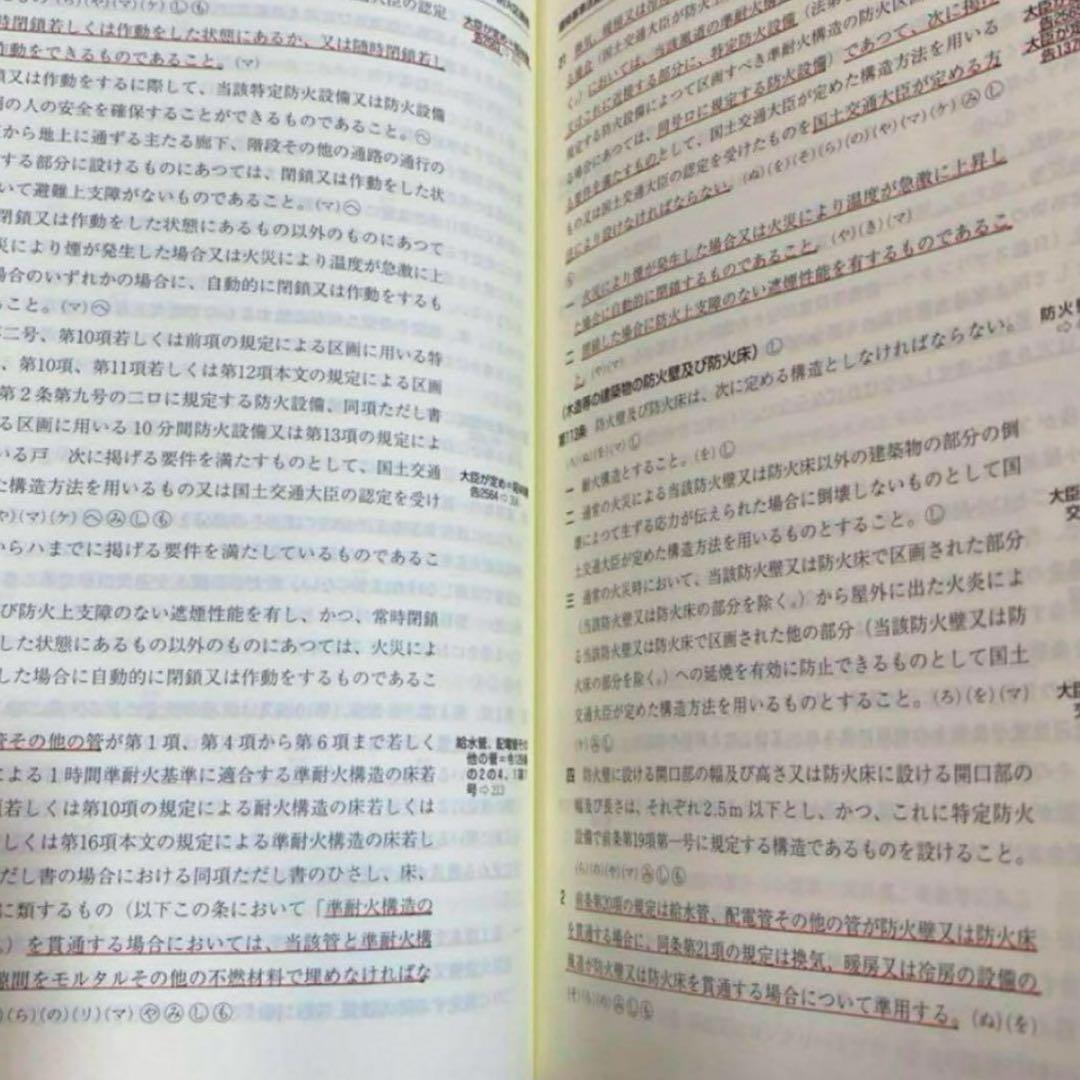 大臣の認定
時閉鎖若しくは作動をした状態にあるか、又は随時閉鎖若し
作動をできるものであること。(マ)
鎖又は作動をするに際して、当該特定防火設備又は防火設備
の人の安全を確保することができるものであること。㋬
から地上に通ずる主たる廊下、階段その他の通路の通行の
する部分に設けるものにあつては、閉鎖又は作動をした状
いて避難上支障がないものであること。(マ)㋬
閉鎖又は作動をした状態にあるもの以外のものにあつて
災により煙が発生した場合又は火災により温度が急激に上
場合のいずれかの場合に、自動的に閉鎖又は作動をするも
ること。(マ)㋬
二号、第10項若しくは前項の規定による区画に用いる特
、第10項、第11項若しくは第12項本文の規定による区画
第2条第九号の二ロに規定する防火設備、同項ただし書
る区画に用いる10分間防火設備又は第13項の規定によ
いる戸 次に掲げる要件を満たすものとして、国土交通
た構造方法を用いるもの又は国土交通大臣の認定を受け
や)(マ)(ケ)㋬㋯㋛㋲
からハまでに掲げる要件を満たしているものであるこ
び防火上支障のない遮煙性能を有し、かつ、常時閉鎖
した状態にあるもの以外のものにあつては、火災によ
した場合に自動的に閉鎖又は作動をするものであるこ
管その他の管が第1項、第4項から第6項まで若しく
による1時間準耐火基準に適合する準耐火構造の床若
項若しくは第10項の規定による耐火構造の床若しくは
しくは第16項本文の規定による準耐火構造の床若し
だし書の場合における同項ただし書のひさし、床、
に類するもの（以下この条において「準耐火構造の
）を貫通する場合においては、当該管と準耐火構
隙間をモルタルその他の不燃材料で埋めなければな
)(ら)(の)(リ)(マ)㋳㋯㋛㋲
大臣が定め
告2564⇨
給水管、配電管その
他の管＝令129条
の2の4、1項
号⇨223
く。）においては、当該風道の準耐火構
又はこれに近接する部分に、特定防火設備（法第
規定する防火設備によつて区画すべき準耐火構造の防火区画
る場合にあつては、同号ロに規定する防火設備）であつて、次に掲げ
る要件を満たすものとして、国土交通大臣が定めた構造方法を用いる
もの又は国土交通大臣の認定を受けたものを国土交通大臣が定める方
法により設けなければならない。(ぬ)(を)(そ)(ら)(の)(や)(マ)(ケ)㋯㋛
一 火災により煙が発生した場合又は火災により温度が急激に上昇し
た場合に自動的に閉鎖するものであること。(や)(き)(マ)
二 閉鎖した場合に防火上支障のない遮煙性能を有するものであるこ
と。(や)(マ)
（木造等の建築物の防火壁及び防火床）㋛
第113条 防火壁及び防火床は、次に定める構造としなければならない。
一 耐火構造とすること。(を)㋛
二 通常の火災による当該防火壁又は防火床以外の建築物の部分の倒
壊によつて生ずる応力が伝えられた場合に倒壊しないものとして国
土交通大臣が定めた構造方法を用いるものとすること。㋛
三 通常の火災時において、当該防火壁又は防火床で区画された部分
（当該防火壁又は防火床の部分を除く。）から屋外に出た火炎によ
る当該防火壁又は防火床で区画された他の部分（当該防火壁又は防
火床の部分を除く。）への延焼を有効に防止できるものとして国土
交通大臣が定めた構造方法を用いるものとすること。(ろ)(を)(マ)
四 防火壁に設ける開口部の幅及び高さ又は防火床に設ける開口部の
幅及び長さは、それぞれ2.5m以下とし、かつ、これに特定防火
設備で前条第19項第一号に規定する構造であるものを設けること。
(ら)(の)(や)(マ)㋯㋛㋲
2 前条第20項の規定は給水管、配電管その他の管が防火壁又は防火床
を貫通する場合に、同条第21項の規定は換気、暖房又は冷房の設備の
風道が防火壁又は防火床を貫通する場合について準用する。(ぬ)(を)
(そ)(ら)(の)㋯㋛㋲
防火壁
大臣
交
大臣
交